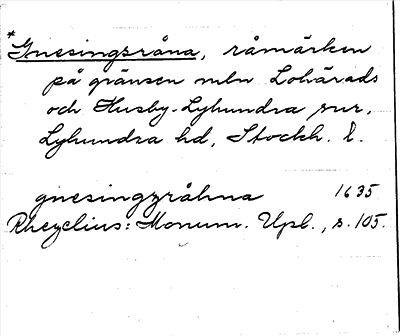 *Gnesingsråna, råmärken
på gränsen mln Lohärads
och Husby-Lyhundra snr,
Lyhundra hd, Stockh. l.
gnesingzråhna 1635
Rhezelius: Monum. Upl., s. 105.